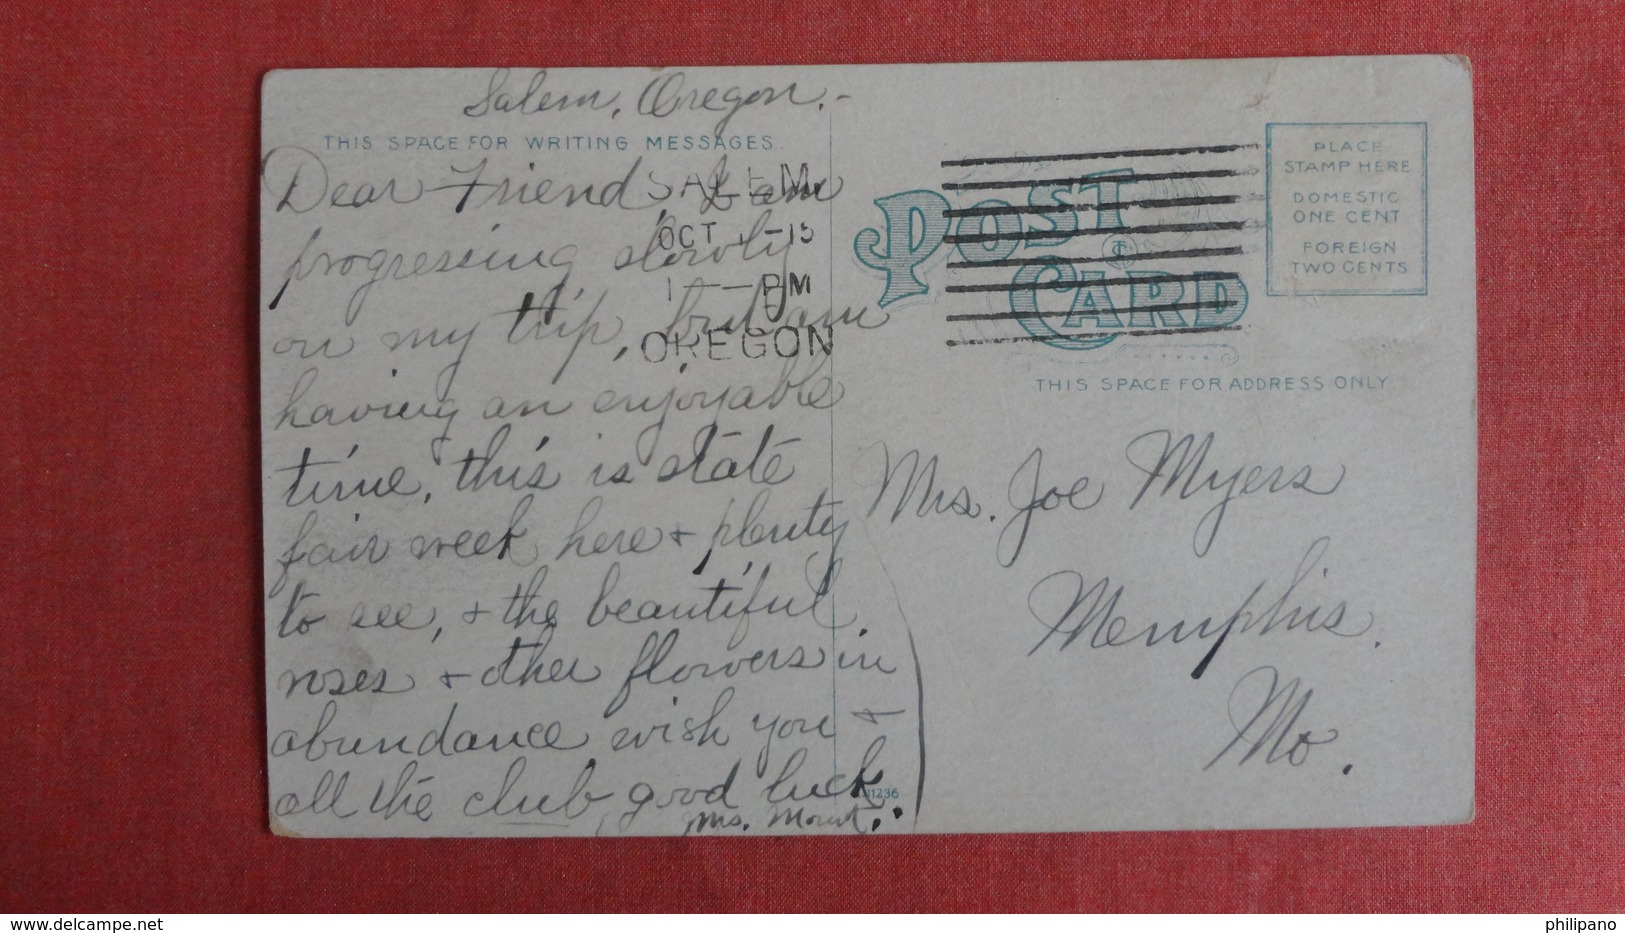 Salem, Oregon.-
THIS SPACE FOR WRITING MESSAGES.
Dear Friend, I am
progressing slowly
on my trip, but am
having an enjoyable
time, this is state
fair week here + plenty
to see, + the beautiful
roses + other flowers in
abundance wish you +
all the club, good luck.
Mrs. Mount.
SALEM.
OCT 1-15
1--PM
OREGON
POST CARD
CT
PLACE
STAMP HERE
DOMESTIC
ONE CENT
FOREIGN
TWO CENTS
THIS SPACE FOR ADDRESS ONLY.
Mrs. Joe Myers
Memphis.
Mo.
philipano